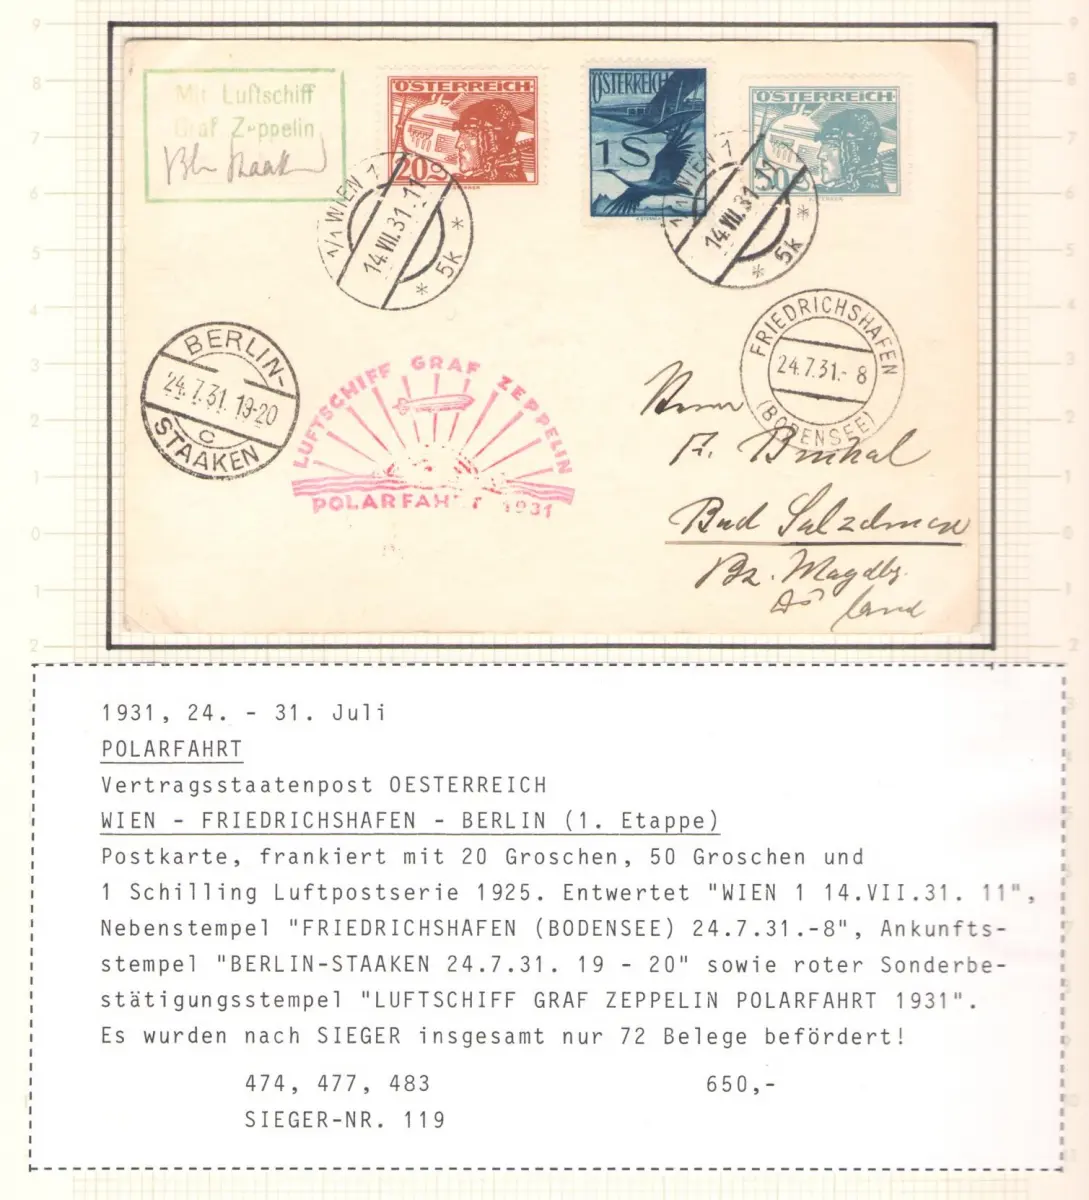 Mit Luftschiff
Graf Zeppelin
Bln Staaken
ÖSTERREICH
20 g
ÖSTERREICH
1S
ÖSTERREICH
50 g
1/1 WIEN 1
14.VII.31.11
* 5k *
1/1 WIEN 1
14.VII.31.11
* 5k *
BERLIN-
24.7.31. 19-20
c
STAAKEN
LUFTSCHIFF GRAF ZEPPELIN
POLARFAHRT 1931
FRIEDRICHSHAFEN
24.7.31.- 8
(BODENSEE)
Herrn
F.
Bad Salzelmen
Bz. Magdbg.
9
8
7
6
5
4
3
2
1
0
1
2
1931, 24. - 31. Juli
POLARFAHRT
Vertragsstaatenpost OESTERREICH
WIEN - FRIEDRICHSHAFEN - BERLIN (1. Etappe)
Postkarte, frankiert mit 20 Groschen, 50 Groschen und
1 Schilling Luftpostserie 1925. Entwertet "WIEN 1 14.VII.31. 11",
Nebenstempel "FRIEDRICHSHAFEN (BODENSEE) 24.7.31.-8", Ankunfts-
stempel "BERLIN-STAAKEN 24.7.31. 19 - 20" sowie roter Sonderbe-
stätigungsstempel "LUFTSCHIFF GRAF ZEPPELIN POLARFAHRT 1931".
Es wurden nach SIEGER insgesamt nur 72 Belege befördert!
474, 477, 483 650,-
SIEGER-NR. 119